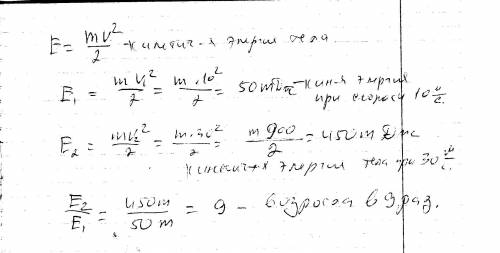 E = mv²/2 - кинетич-я энергия тела.
E₁ = mv₁²/2 = m·10²/2 = 50m Дж - кин-я энергия
при скорости 10 м/с.
E₂ = mv₂²/2 = m·30²/2 = m900/2 = 450m Дж
кинетич-я энергия тела при 30 м/с.
E₂/E₁ = 450m/50m = 9 - возросла в 9 раз.